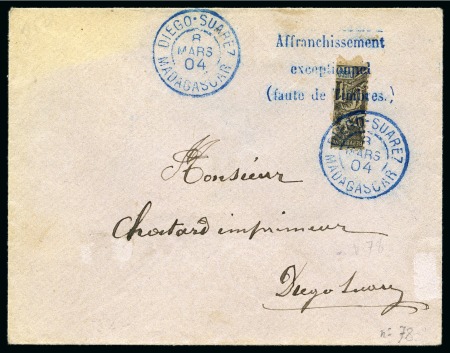 DIEGO-SUAREZ
8
MARS
04
MADAGASCAR
Affranchissement
exceptionnel
(faute de Timbres.)
DIEGO-SUAREZ
8
MARS
04
MADAGASCAR
Monsieur
Chatard imprimeur
Diego Suarez
n° 78